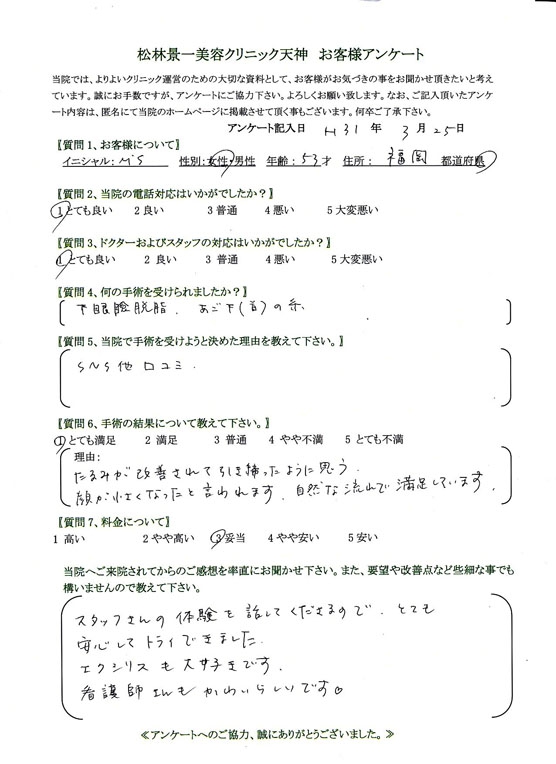 松林景一美容クリニック天神 お客様アンケート
当院では、よりよいクリニック運営のための大切な資料として、お客様がお気づきの事をお聞かせ頂きたいと考え
ています。誠にお手数ですが、アンケートにご協力下さい。よろしくお願い致します。なお、ご記入頂いたアンケ
ート内容は、匿名にて当院のホームページに掲載させて頂く事もございます。何卒ご了承下さい。
アンケート記入日 H31 年 3月25日
【質問1、お客様について】
イニシャル:M'S 性別:女性・男性 年齢:53才 住所: 福岡 都道府県
【質問2、当院の電話対応はいかがでしたか?】
1とても良い 2良い 3普通 4悪い 5大変悪い
【質問3、ドクターおよびスタッフの対応はいかがでしたか?】
1とても良い 2 良い 3 普通 4悪い 5大変悪い
【質問4、何の手術を受けられましたか?】
下眼瞼脱脂. あご下(首)の糸.
【質問5、当院で手術を受けようと決めた理由を教えて下さい。】
SNS他口コミ.
【質問6、手術の結果について教えて下さい。】
1とても満足 2 満足 3 普通 4 やや不満 5 とても不満
理由:
たるみが改善されて引き締ったように思う.
顔が小さくなったと言われます. 自然な流れで満足しています.
【質問7、料金について】
1 高い 2やや高い 3妥当 4やや安い 5安い
当院へご来院されてからのご感想を率直にお聞かせ下さい。また、要望や改善点など些細な事でも
構いませんので教えて下さい。
スタッフさんの体験を話してくださるので、とても
安心してトライできました.
エクシリスも大好きです.
看護師さんもかわいらしいです♡
≪アンケートへのご協力、誠にありがとうございました。≫